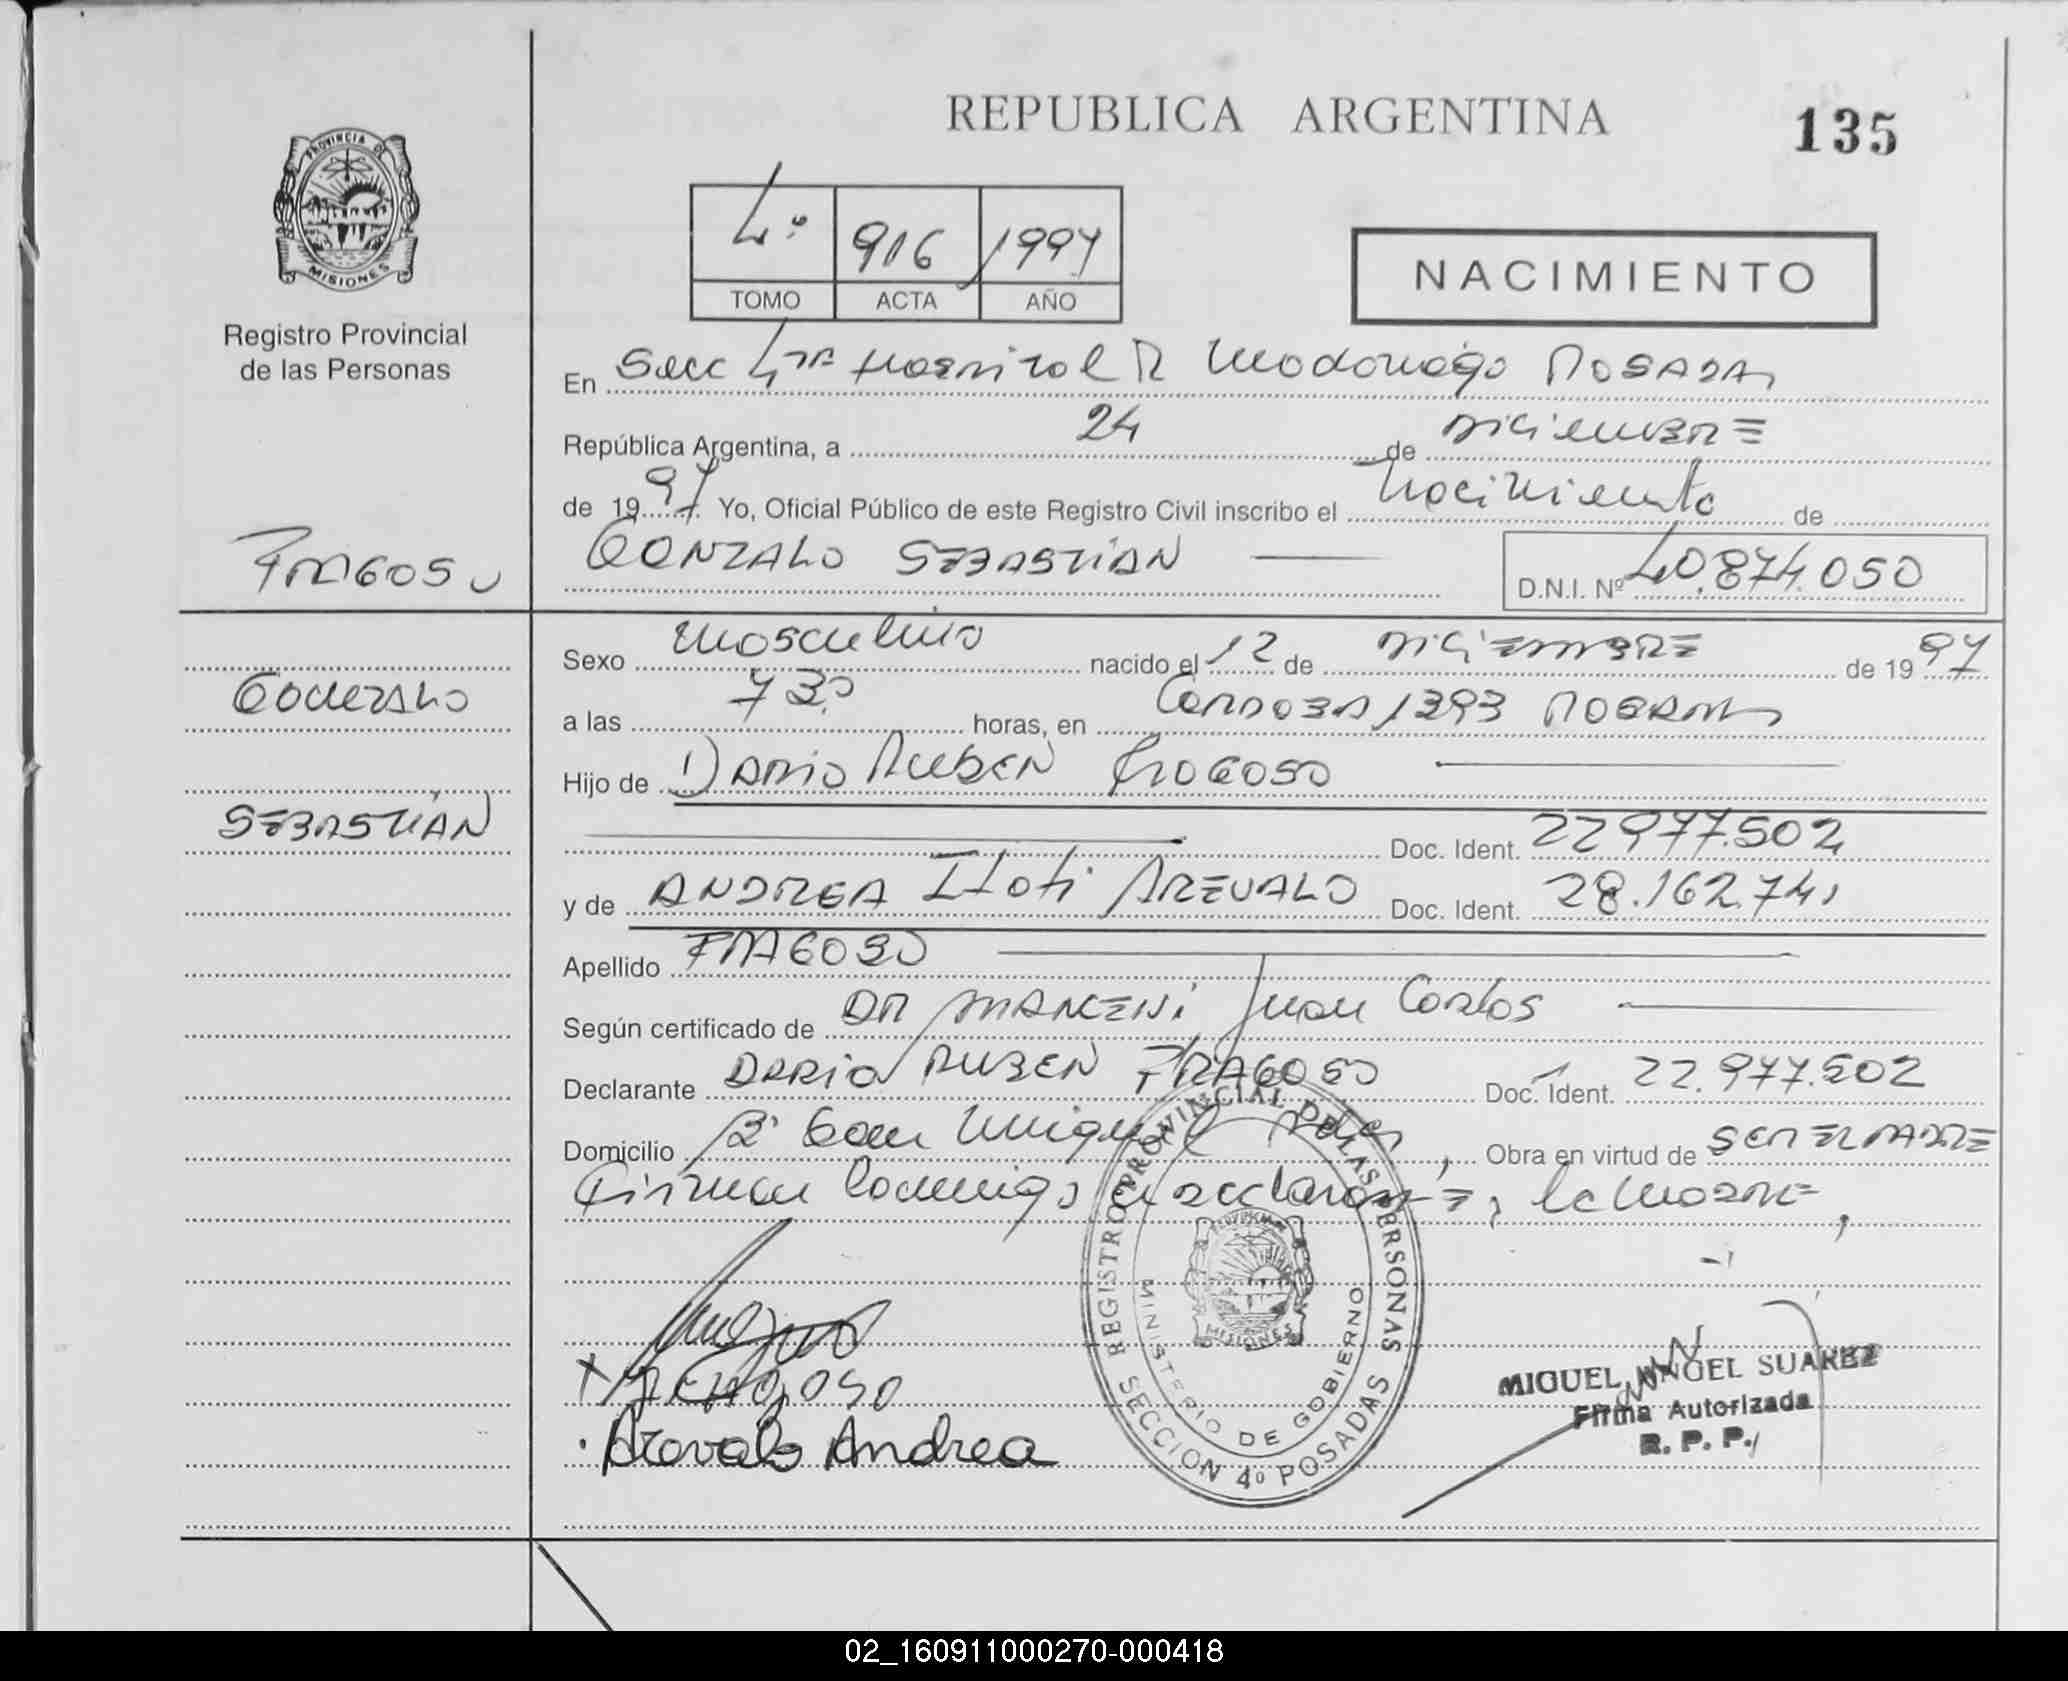 REPUBLICA ARGENTINA
135
PROVINCIA DE
MISIONES
Registro Provincial
de las Personas
4º 916 1997
TOMO ACTA AÑO
NACIMIENTO
En Secc 4ta Hospital R Madariaga POSADAS
República Argentina, a 24 de DICIEMBRE
de 1997 Yo, Oficial Público de este Registro Civil inscribo el Nacimiento de
FRAGOSO
GONZALO SEBASTIÁN
D.N.I. Nº 40.874.050
Sexo Masculino nacido el 12 de DICIEMBRE de 1997
GONZALO
a las 730 horas, en CORDOBA 1393 POSADAS
Hijo de 1) DARIO RUBEN FRAGOSO
SEBASTIÁN
Doc. Ident. 22977.502
y de ANDREA Itati AREVALO Doc. Ident. 28.162.741
Apellido FRAGOSO
Según certificado de DR Juan Carlos
Declarante DARIO RUBEN FRAGOSO Doc. Ident. 22.977.502
Domicilio Bº San Miguel Pdas, Obra en virtud de SER EL PADRE
Firman Conmigo el declarante, la Madre,
FRAGOSO
Arevalo Andrea
REGISTRO PROVINCIAL DE LAS PERSONAS
MINISTERIO DE GOBIERNO
MISIONES
SECCION 4º POSADAS
MIGUEL ANGEL SUAREZ
Firma Autorizada
R. P. P.
02_160911000270-000418